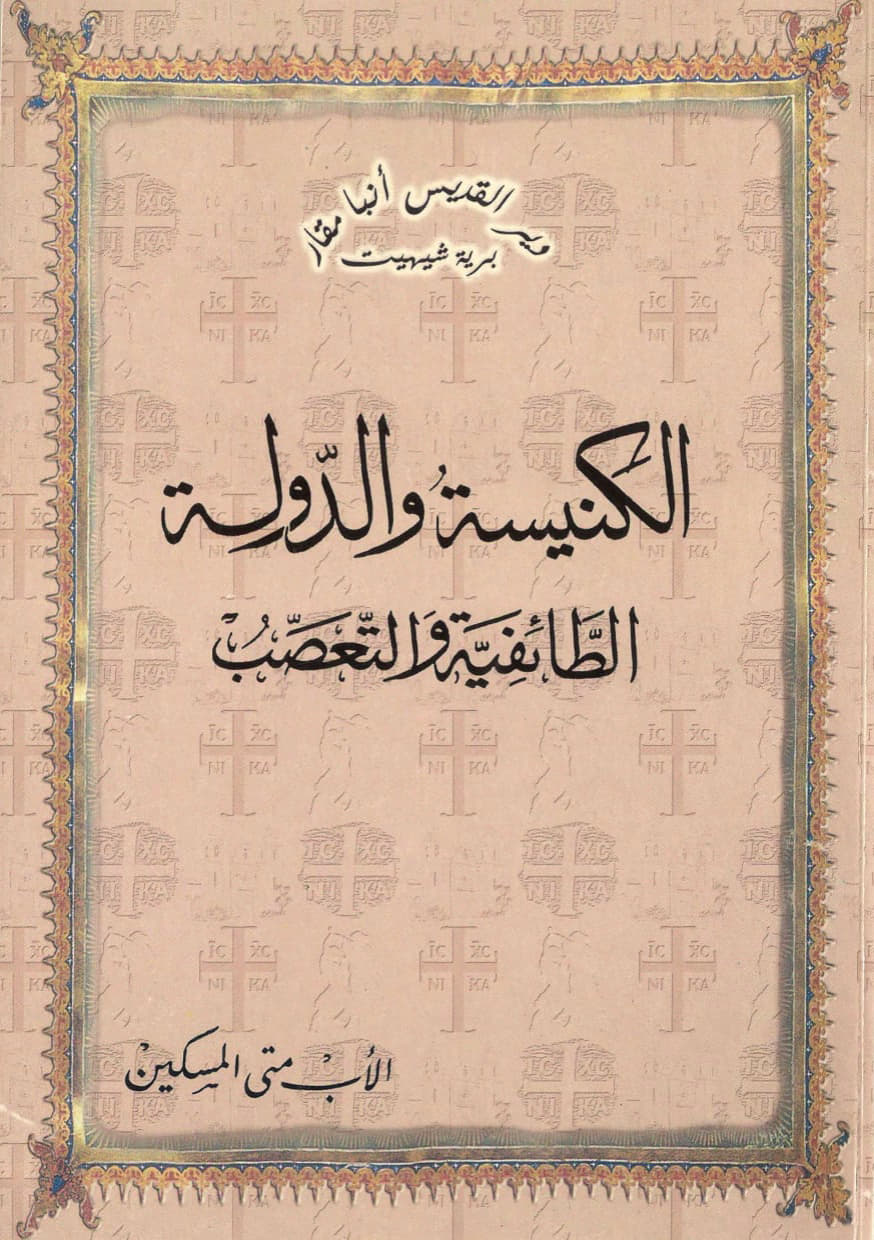 دير القديس أنبا مقار
برية شيهيت
الكنيسةُ والدّولِة
الطَّائفِيَّة وَالتَّعَصَّبُ
الأب متى المسكين
IC XC
NI KA